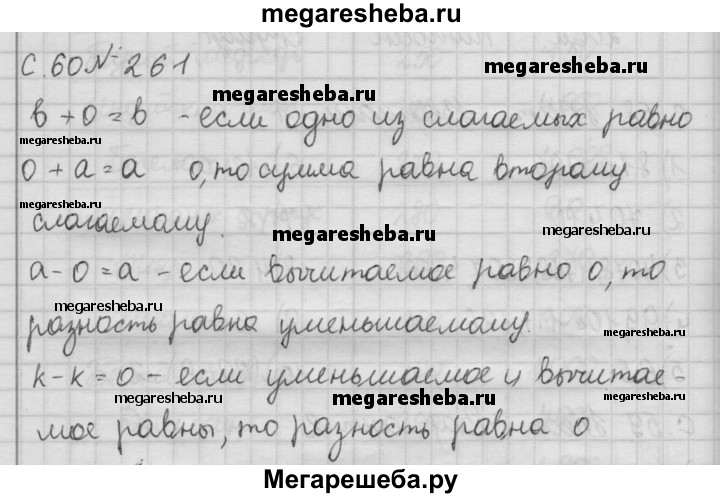 megaresheba.ru
С. 60 № 261
megaresheba.ru
megaresheba.ru
в + 0 = в - если одно из слагаемых равно
megaresheba.ru
0 + а = а 0, то сумма равна второму
megaresheba.ru
слагаемому.
megaresheba.ru
megaresheba.ru
а - 0 = а - если вычитаемое равно 0, то
megaresheba.ru
разность равна уменьшаемому.
megaresheba.ru
k - k = 0 - если уменьшаемое и вычитае-
megaresheba.ru
megaresheba.ru
megaresheba.ru
мое равны, то разность равна 0
Мегарешеба.ру